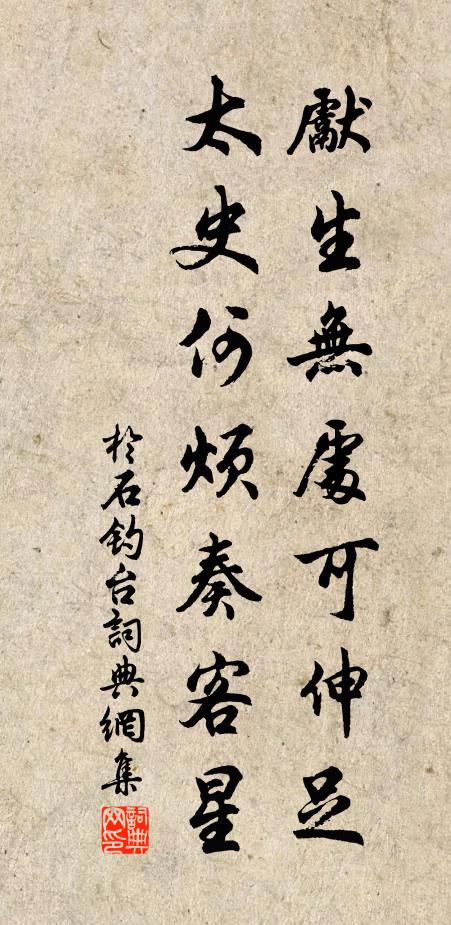 獻生無處可伸足
太史何煩奏客星
於石釣台詞典網集
詞典
网印